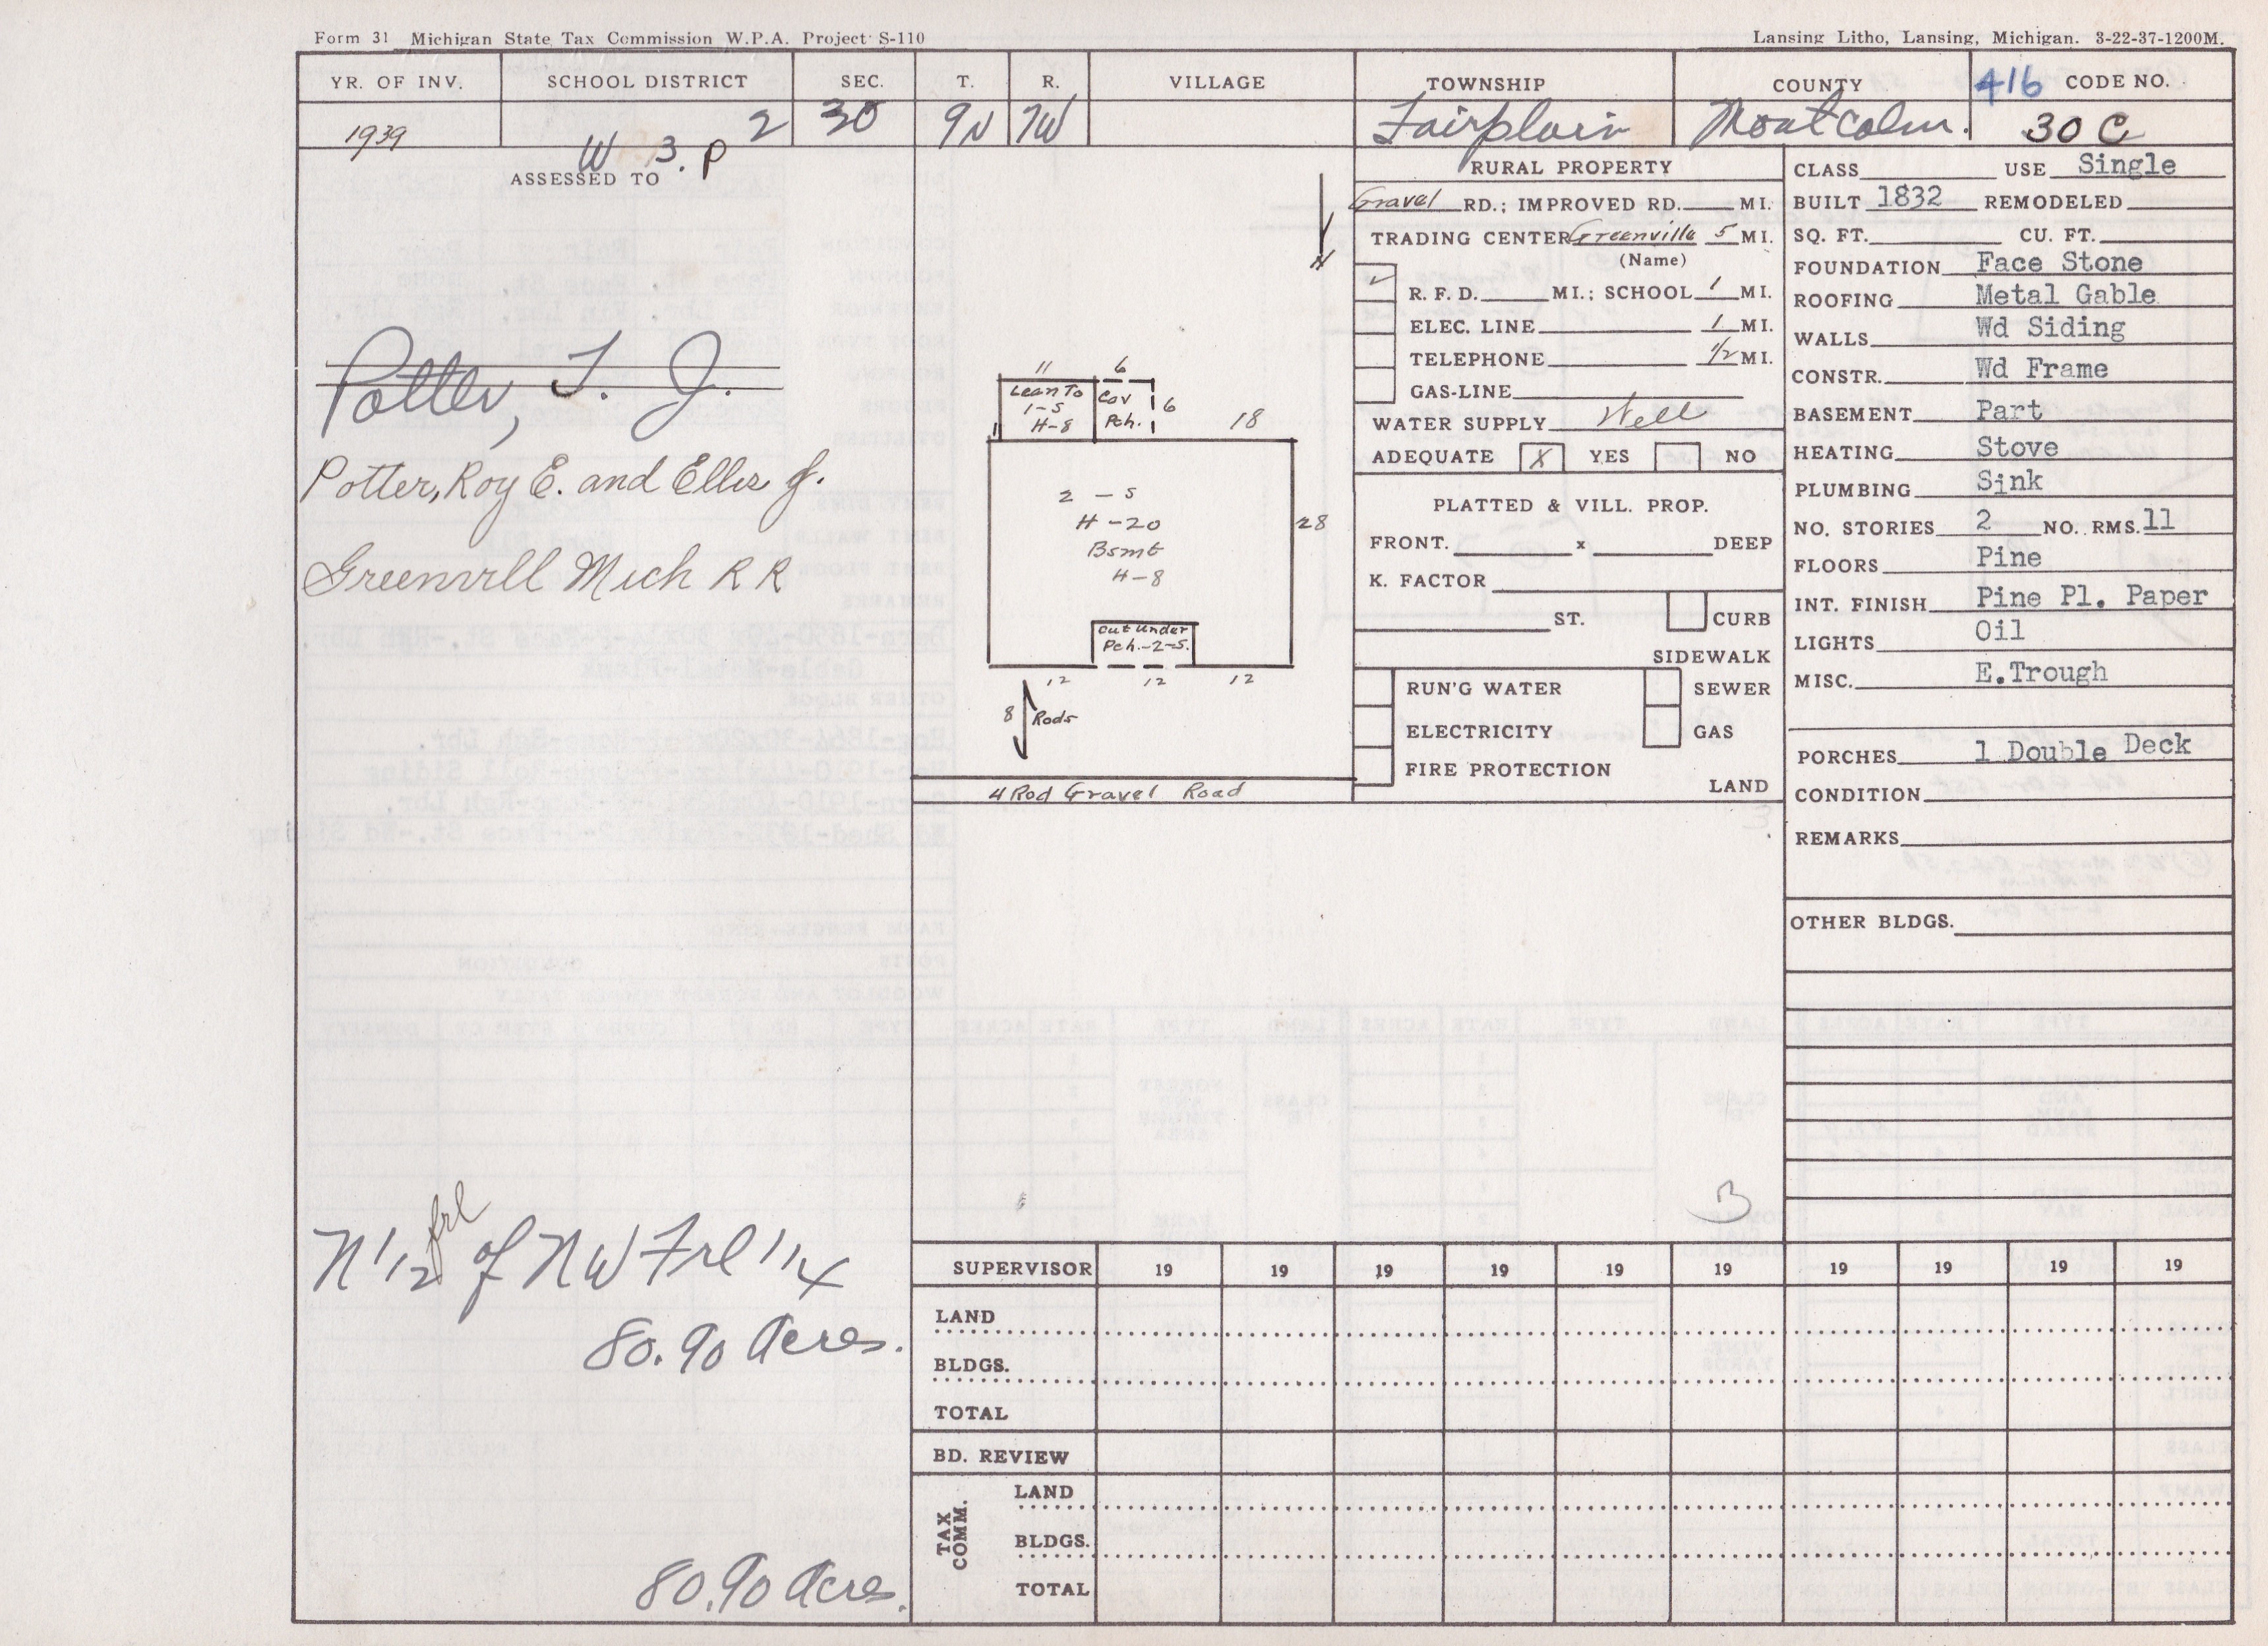 Form 31 Michigan State Tax Commission W.P.A. Project S-110
Lansing Litho, Lansing, Michigan. 3-22-37-1200M.
YR. OF INV. SCHOOL DISTRICT SEC. T. R. VILLAGE TOWNSHIP COUNTY 416 CODE NO.
1939 2 30 9N 7W Fairplain Montcalm. 30 C
W 3. P
ASSESSED TO
Potter, T. J.
Potter, Roy E. and Ellis J.
Greenvill Mich R R
N 1/2 frl of N W Frl 1/4
80.90 Acres.
80.90 Acres.
N
11 6
Lean To
1-S
H-8
Cov
Pch.
6
18
2 - S
H - 20
Bsmt
H - 8
28
Out Under
Pch.-2-S.
12 12 12
8 Rods
4 Rod Gravel Road
RURAL PROPERTY
Gravel RD.; IMPROVED RD. MI.
TRADING CENTER Greenville 5 MI.
(Name)
✓ R. F. D. MI.; SCHOOL 1 MI.
ELEC. LINE 1 MI.
TELEPHONE 1/2 MI.
GAS-LINE
WATER SUPPLY Well
ADEQUATE X YES NO
PLATTED & VILL. PROP.
FRONT. x DEEP
K. FACTOR
ST. CURB
SIDEWALK
RUN'G WATER SEWER
ELECTRICITY GAS
FIRE PROTECTION
LAND
B
CLASS USE Single
BUILT 1832 REMODELED
SQ. FT. CU. FT.
FOUNDATION Face Stone
ROOFING Metal Gable
WALLS Wd Siding
CONSTR. Wd Frame
BASEMENT Part
HEATING Stove
PLUMBING Sink
NO. STORIES 2 NO. RMS. 11
FLOORS Pine
INT. FINISH Pine Pl. Paper
LIGHTS Oil
MISC. E.Trough
PORCHES 1 Double Deck
CONDITION
REMARKS
OTHER BLDGS.
SUPERVISOR 19 19 19 19 19 19 19 19 19 19
LAND
BLDGS.
TOTAL
BD. REVIEW
TAX COMM.
LAND
BLDGS.
TOTAL